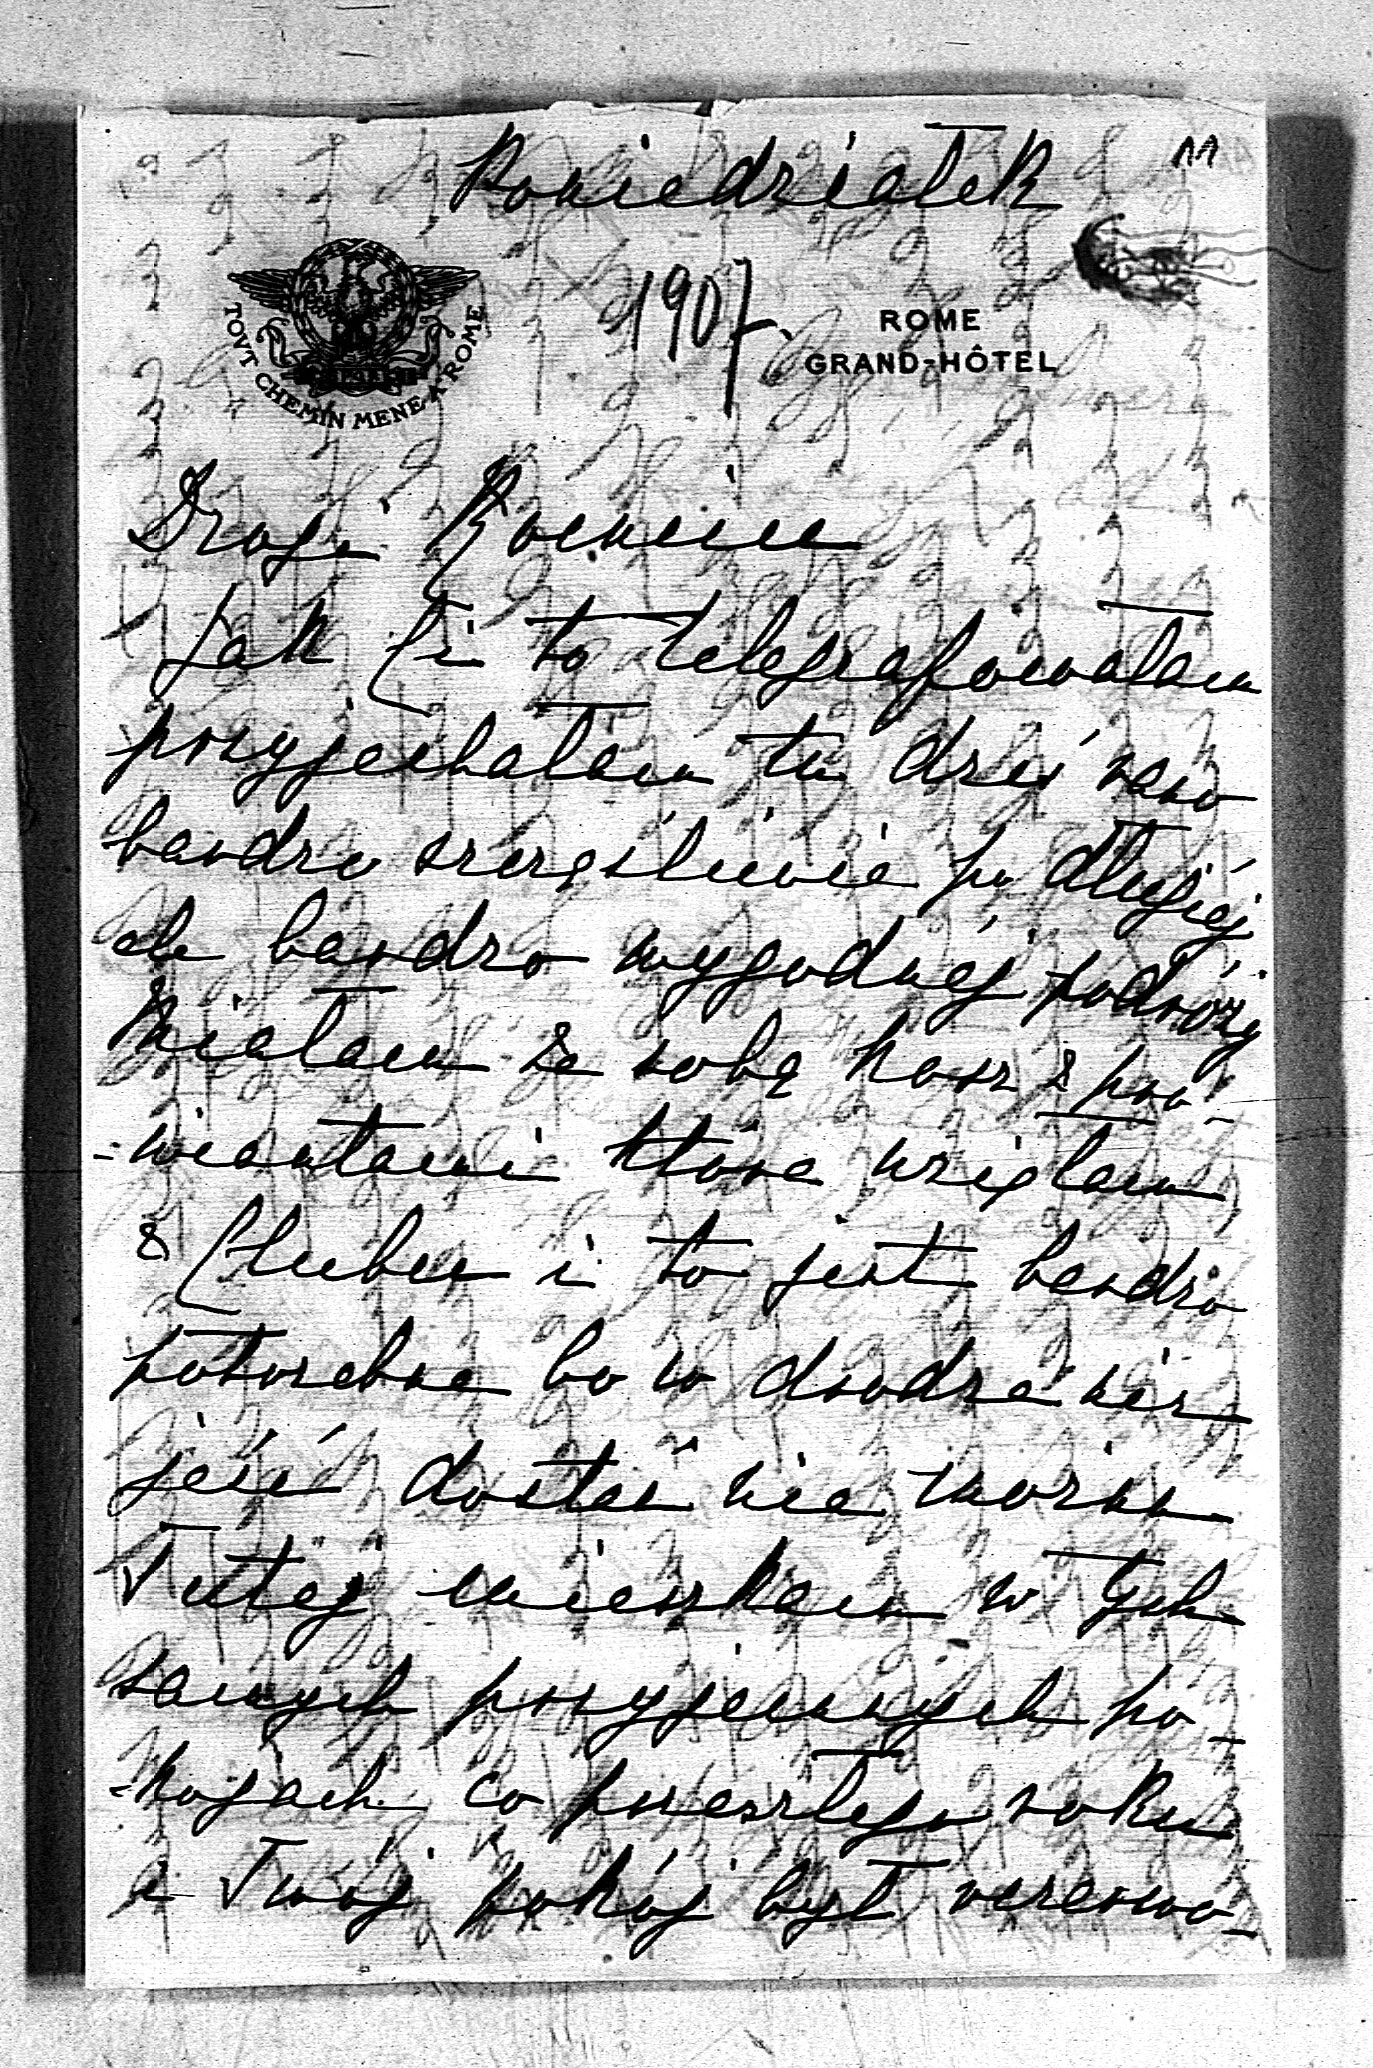 Poniedziałek
11
1907.
TOVT CHEMIN MENE A ROME
ROME
GRAND-HÔTEL
Drogi
Jak Ci to telegrafowałam
przyjechałam tu dziś rano
bardzo szczęśliwie po długiéj
ale bardzo wygodnéj podróży
Miałam ze sobą kosz z pro-
-wiantami które wzięłam
z Clubu i to jest bardzo
potrzebne bo w drodze nic
jeść dostać nie można
Tutej mieszkam w tych
samych przyjemnych po-
-kojach co przeszłego roku
i Twój pokój był rezerwo-